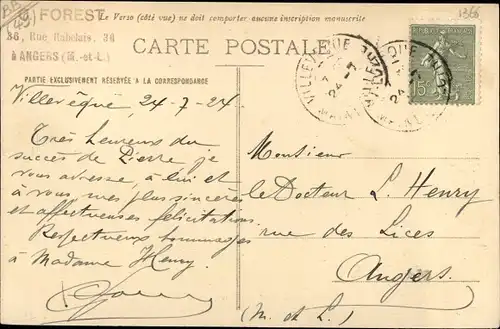 FOREST
36, Rue Rabelais, 36
à ANGERS (M.-et-L.)
Le Verso (côté vue) ne doit comporter aucune inscription manuscrite
1366
CARTE POSTALE
PARTIE EXCLUSIVEMENT RÉSERVÉE A LA CORRESPONDANCE
Villevêque, 24-7-24.
Très heureux du
succès de Pierre je
vous adresse, à lui et
à vous mes plus sincères
et affectueuses félicitations.
Respectueux hommages
à Madame Henry.
Monsieur
le Docteur L. Henry
rue des Lices
Angers.
(M. et L.)
15